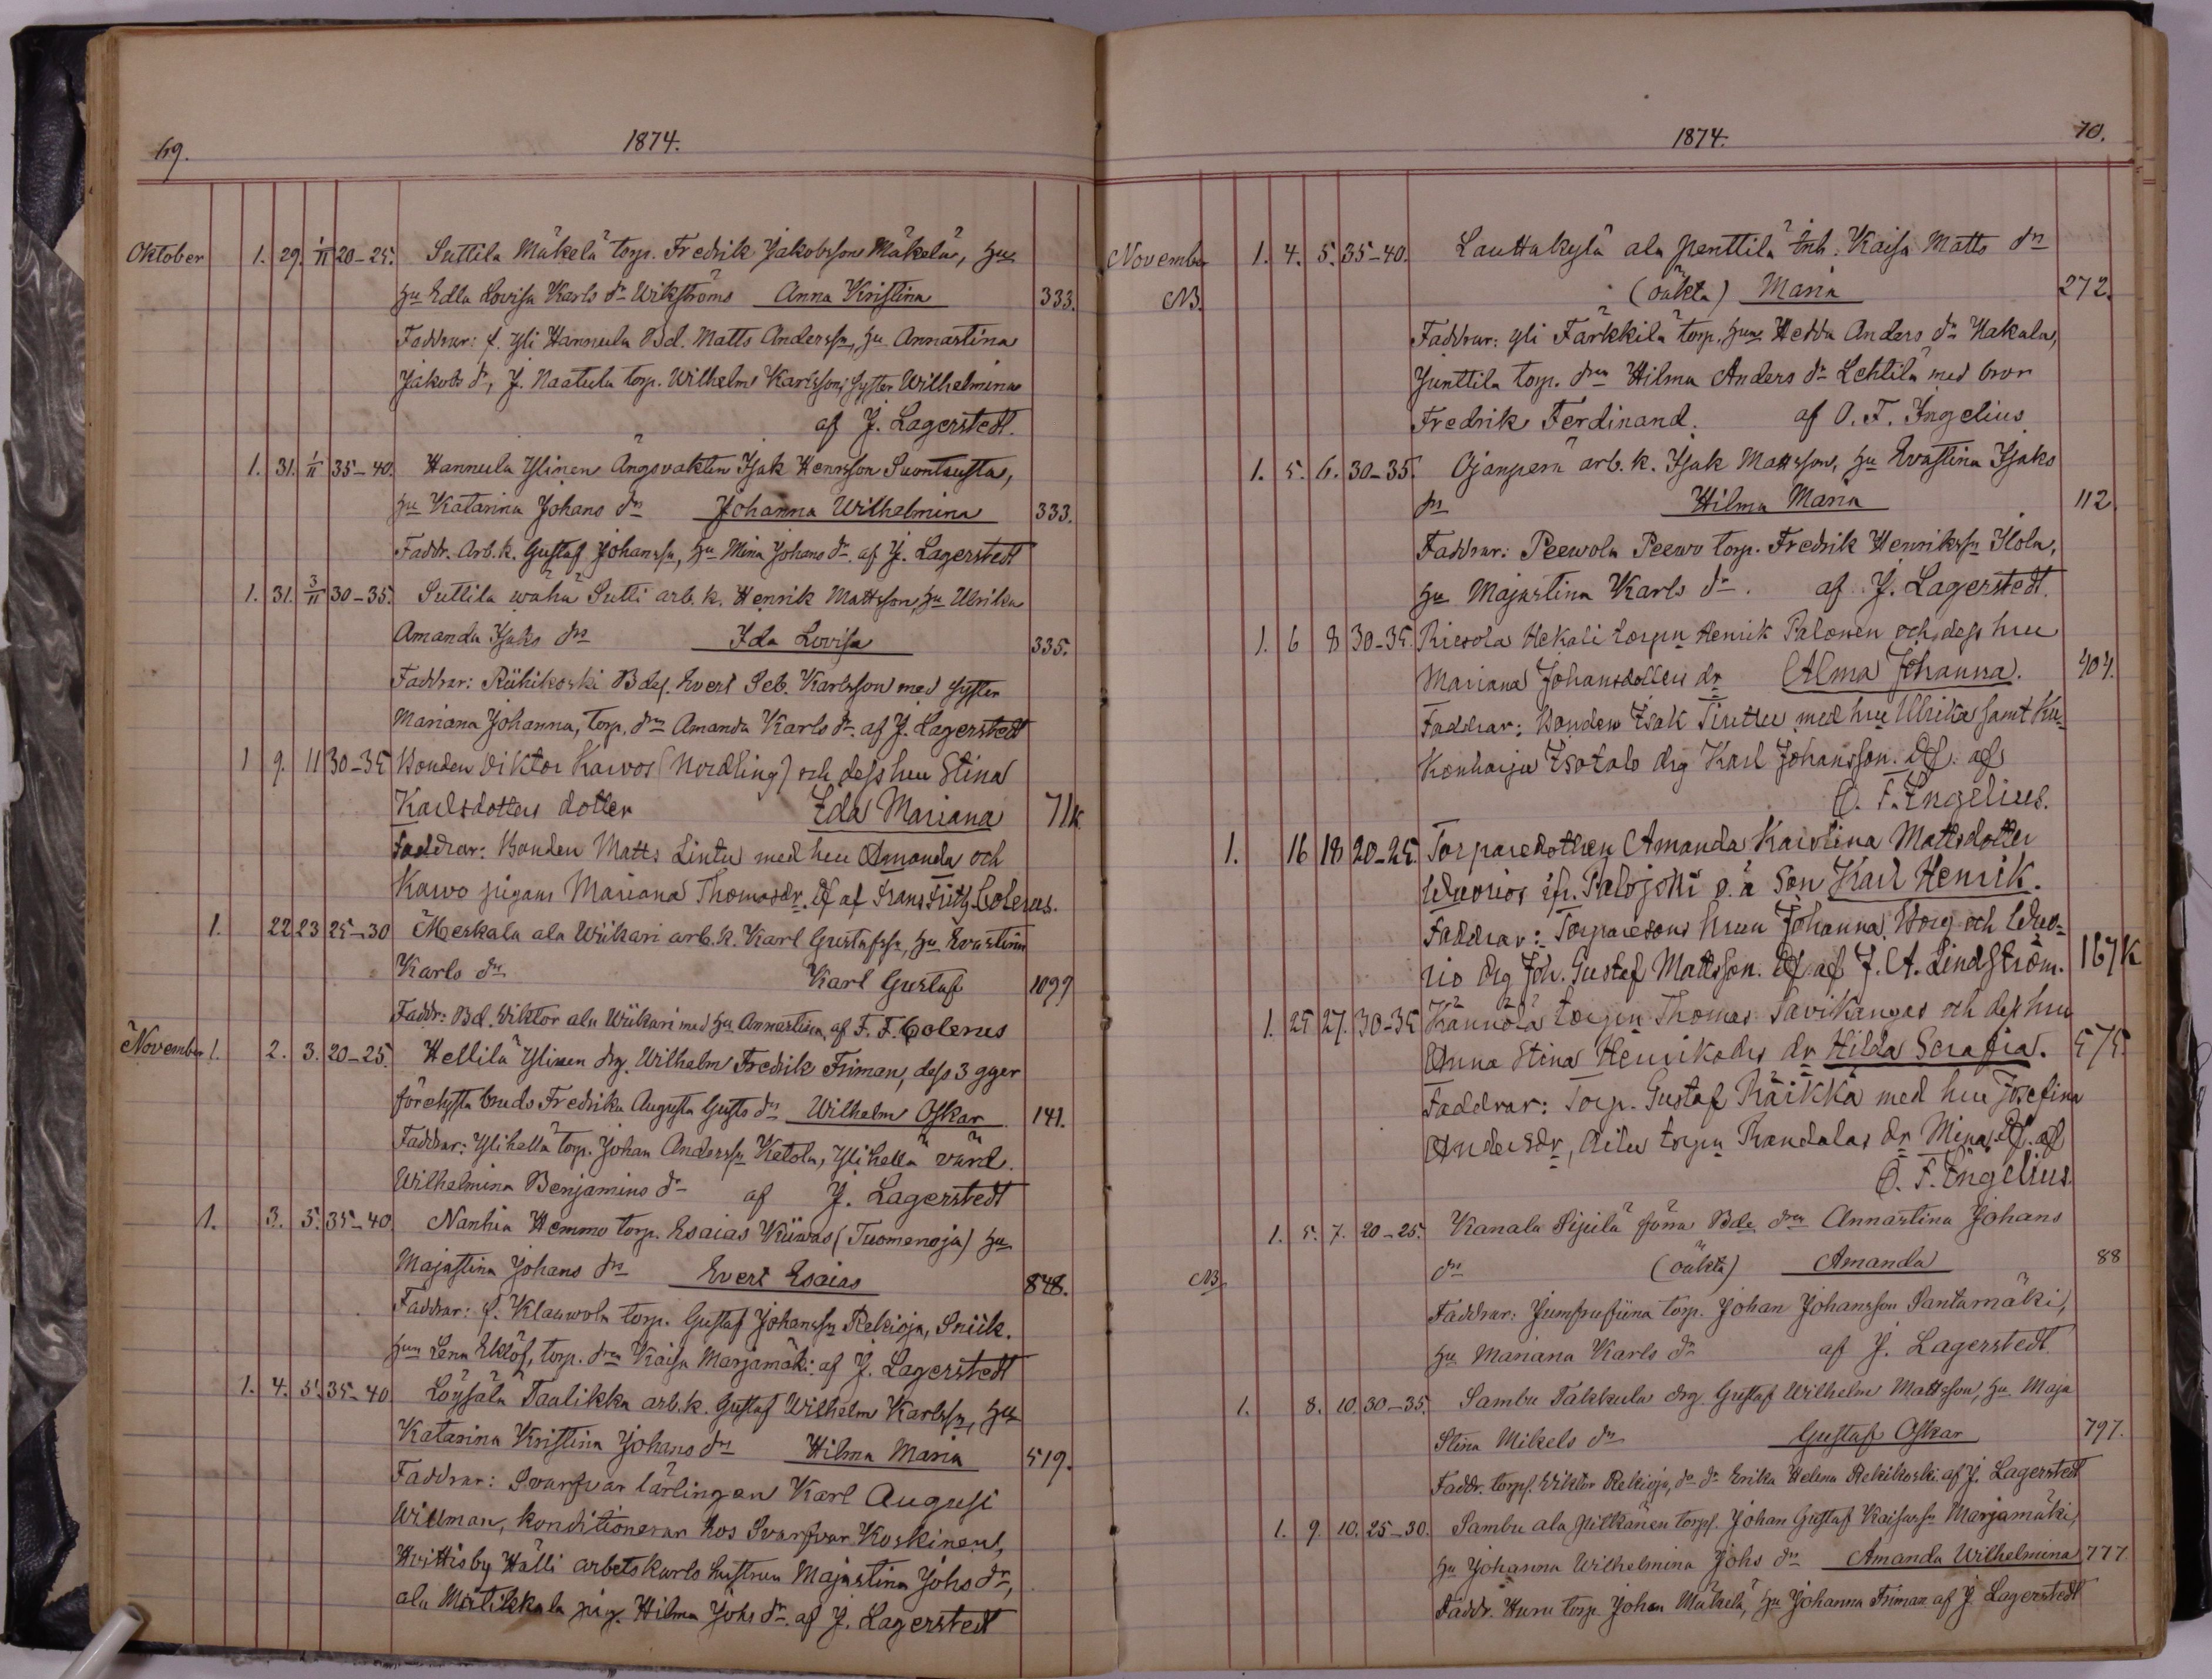 69.
1874.
Oktober 1. 29. 1/11 20-25. Suttila Mäkelä torp. Fredrik Jakobsson Mäkelä, hu
hu Edla Lovisa Karls dr Wikströms Anna Kristina 333.
Faddrar: f. Yli Hannula Bd. Matts Anderssn, hu Annastina
Jakobs dr, J. Naatula torp. Wilhelm Karlssons syster Wilhelmina
af J. Lagerstedt.
1. 31. 1/11 35-40. Hannula Ylinen Ängsvakten Isak Henrsson Suontausta,
hu Katarina Johans drs Johanna Wilhelmina 333.
Faddr. Arb. k. Gustaf Johanssn, hu Mina Johans dr. af J. Lagerstedt
1. 31. 3/11 30-35. Suttila wähä Sutti arb. k. Henrik Mattsson, hu Ulrika
Amanda Isaks drs Ida Lovisa 335.
Faddrar: Riihikoski Bdes. Evert Seb. Karlsson med syster
Mariana Johanna, torp. drn Amanda Karls dr. af J. Lagerstedt
1 9. 11 30-35 Bonden Viktor Karvos (Nordling) och dess hu Stina
Karlsdotters dotter Ida Mariana 71k
Faddrar: Bonden Matts Lintu med hu Amanda och
Karvo pigans Mariana Thomasdr. Df af Frans Fritz. Colerus.
1. 22 23 25-30 Meskala ala Wiikari arb. k. Karl Gustafssn, hu Evastina
Karls drs Karl Gustaf 1099
Faddr: Bd. Viktor ala Wiikari med hu Annastina, af F. F. Colerus
November 1. 2. 3. 20-25. Hellilä Ylinen drg. Wilhelm Fredrik Friman, dess 3 gger
förelysta bruds Fredrika Augusta Gusts drs Wilhelm Oskar 141.
Faddrar: Ylihellä torp. Johan Anderssn Ketola, Ylihellä värd.
Wilhelmina Benjamins dr af J. Lagerstedt
1. 3. 5. 35-40 Nanhia Hemmo torp. Esaias Kiiwas (Tuomenoja) hu
Majastina Johans drs Evert Esaias 848.
Faddrar: f. Klauwola torp. Gustaf Johanssn Rekioja, Sniik.
hun Lena Eklöf, torp. drn Kaisa Marjamäki af J. Lagerstedt
1. 4. 5. 35-40 Loysälä Taalikka arb. k. Gustaf Wilhelm Karlssn, hu
Katarina Kristina Johans drs Hilma Maria 519.
Faddrar: Svarfvar lärlingen Karl August
Willman, konditionerar hos Svarfvar Koskinen,
Hvittisby Hälli arbetskarls hustrun Majastina Johs dr,
ala Mätikkala pig. Hilma Johs dr. af J. Lagerstedt
1874.
70.
November 1. 4. 5. 35-40. Lauttakylä ala Penttilä Inh. Kaisa Matts drs
NB. (oäkta) Maria 272.
Faddrar: Yli Färkkilä torp. hun Hedda Anders dr Hakala,
Junttila torp. drn Hilma Anders dr Lehtilä med bror
Fredrik Ferdinand. af O. F. Ingelius
1. 5. 6. 30-35. Ojanperä arb. k. Isak Mattsson, hu Evastina Isaks
drs Hilma Maria 112
Faddrar: Peewola Peewo torp. Fredrik Henrikssn Ilola,
hu Majastina Karls dr. af J. Lagerstedt.
1. 6 8 30-35. Riesola Hekali torpn Henrik Palonen och dess hu
Mariana Johansdotters dr Alma Johanna. 404.
Faddrar: Bonden Isak Tiuttu med hu Ulrika samt Ku-
konharja Isotalo drg Karl Johansson. Df. af
O. F. Ingelius.
1. 16 18 20-25. Torparedottren Amanda Karolina Mattsdotter
Wuorios fr. Palojoki o. ä Son Karl Henrik.
Faddrar: Torparesons hun Johanna Borg och Wuo-
rio drg Joh. Gustaf Mattsson. Df af J. A. Lindström. 167k
1. 25 27. 30-35 Kännölä torpn Thomas Savikangas och dess hu
Anna Stina Henriksdrs dr Hilda Serafia. 575.
Faddrar: Torp. Gustaf Räikkä med hu Josefina
Andersdr, Aitu torpn Randalas dr Mina. Df. af
O. F. Ingelius.
1. 5. 7. 20-25. Kanala Pijulä Bde drn Annastina Johans
NB. drs (oäkta) Amanda 88
Faddrar: Jumfrufiina torp. Johan Johansson Santamäki,
hu Mariana Karls dr af J. Lagerstedt
1. 8. 10. 30-35. Sambu Takkula drg. Gustaf Wilhelm Mattsson, hu Maja
Stina Mikels drs Gustaf Oskar 797.
Faddr. torps. Viktor Rekioja, do dr Erika Helena Rekikoski af J. Lagerstedt
1. 9. 10. 25-30. Sambu ala Pitkänen torps. Johan Gustaf Kaisassn Marjamäki,
hu Johanna Wilhelmina Johs drs Amanda Wilhelmina 777.
Faddr. Huru torp. Johan Mäkelä, hu Johanna Friman af J. Lagerstedt